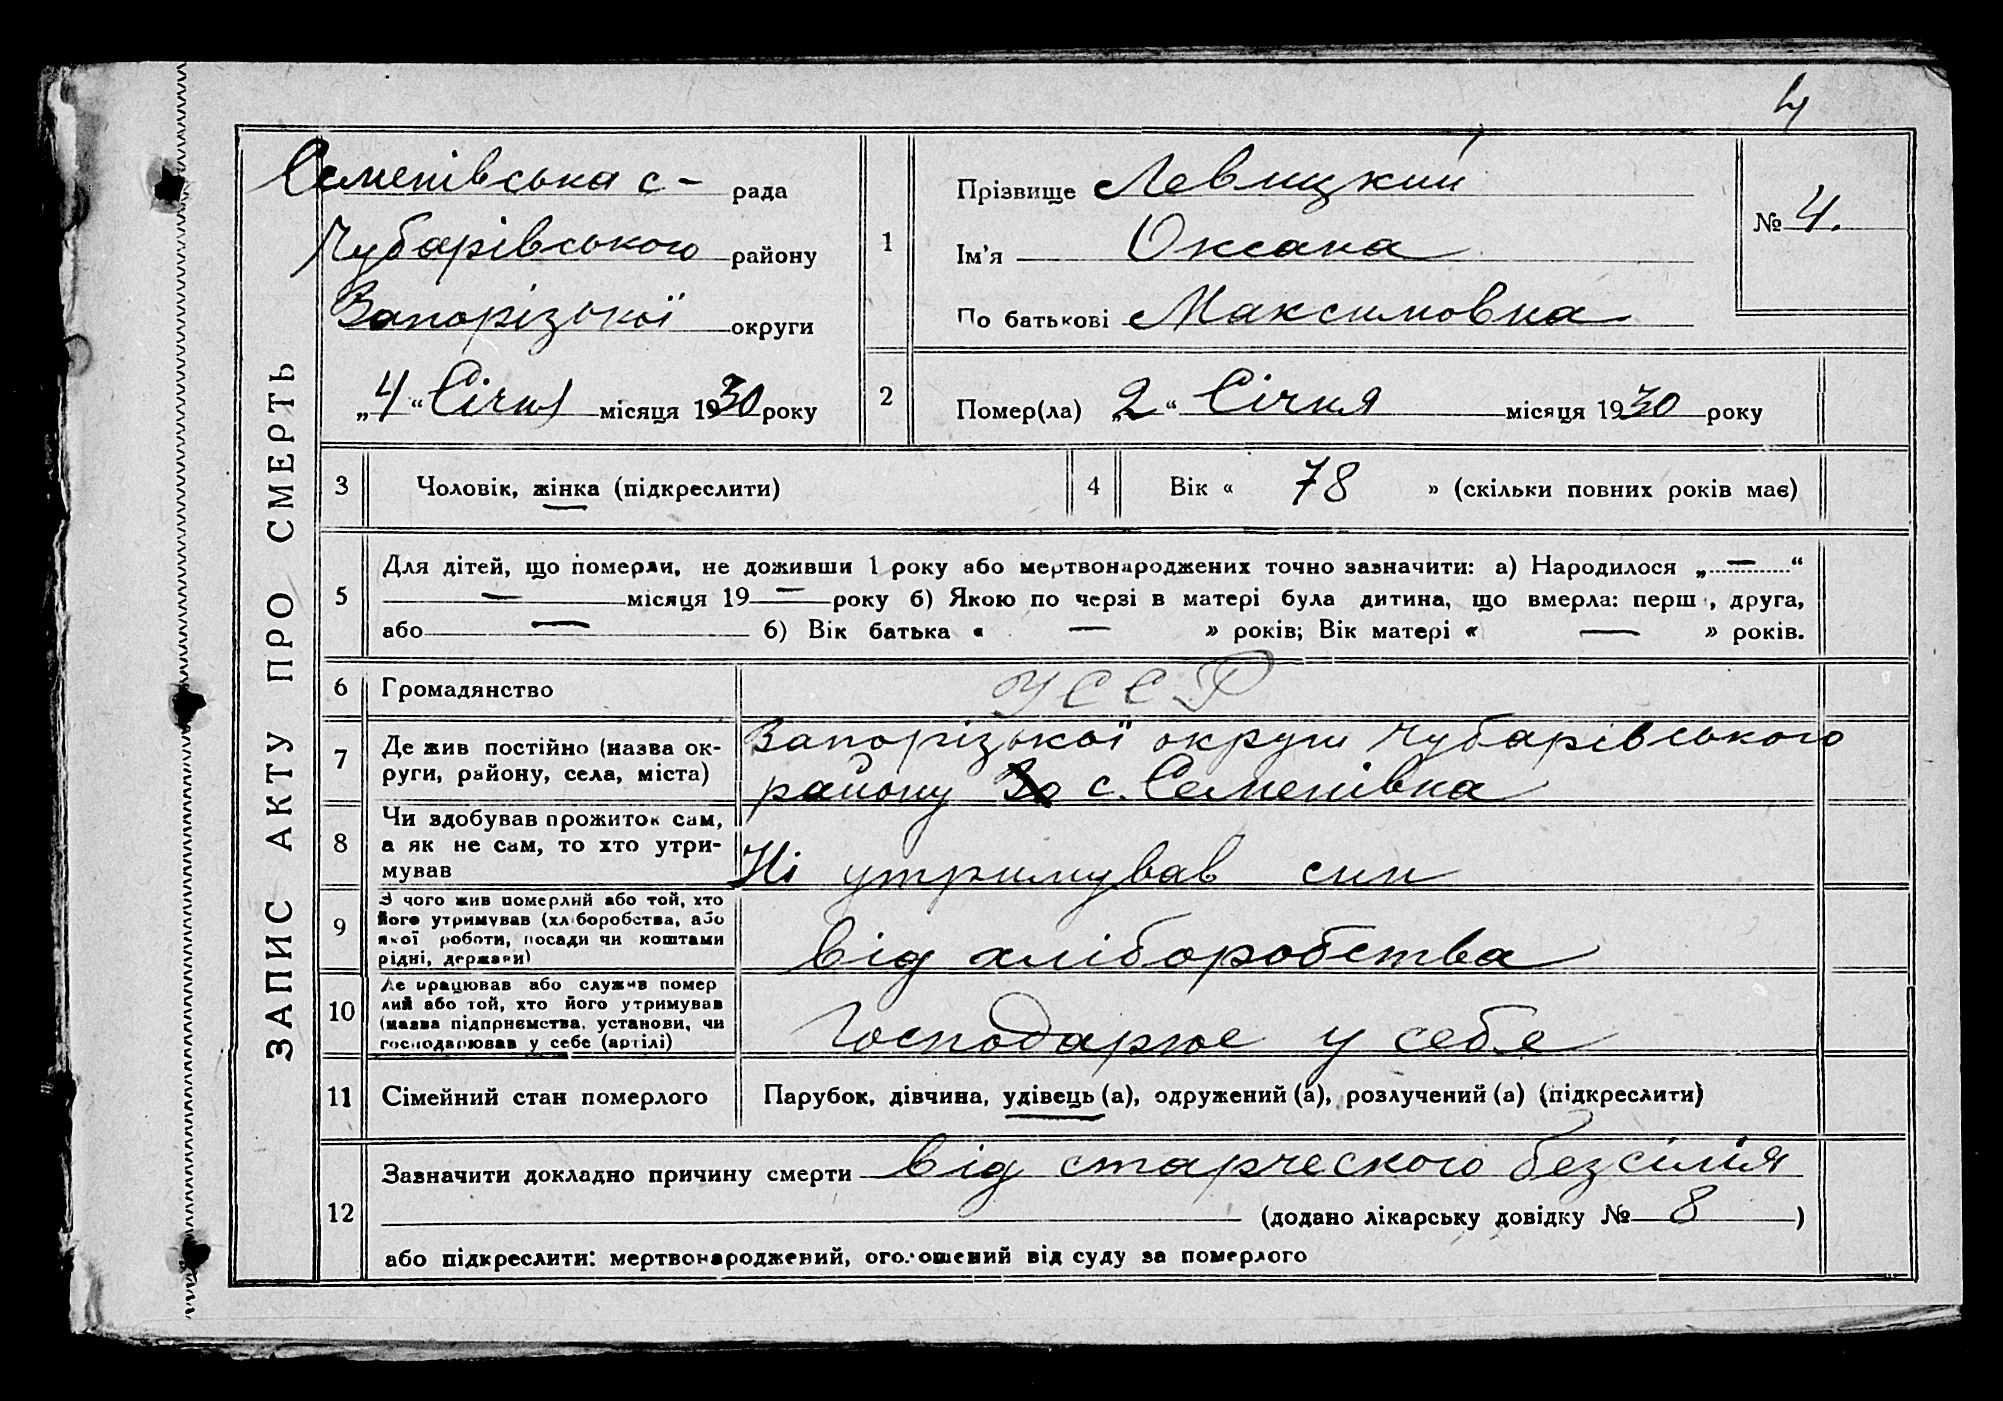 4
ЗАПИС АКТУ ПРО СМЕРТЬ
Семенівська с- рада
Чубарівського району
Запорізької округи
„4“ Січня місяця 1930 року
1
Прізвище Левицкий
Ім'я Оксана
По батькові Максимовна
№ 4.
2
Помер(ла) „2“ Січня місяця 1930 року
3 Чоловік, жінка (підкреслити)
4 Вік « 78 » (скільки повних років має)
5
Для дітей, що померли, не доживши 1 року або мертвонароджених точно зазначити: а) Народилося „ — “
— місяця 19 — року б) Якою по черзі в матері була дитина, що вмерла: перш , друга,
або — б) Вік батька « — » років; Вік матері « — » років.
6 Громадянство УССР
7
Де жив постійно (назва ок-
руги, району, села, міста)
Запорізької округи Чубарівського
району с. Семенівка
8
Чи здобував прожиток сам,
а як не сам, то хто утри-
мував
Ні утримував син
9
З чого жив померлий або той, хто
його утримував (хліборобства, або
якої роботи, посади чи коштами
рідні, держави)
від хліборобства
10
Де працював або служив помер
лий або той, хто його утримував
(назва підприємства, установи, чи
господарював у себе (артілі)
Господарює у себе
11 Сімейний стан померлого
Парубок, дівчина, удівець (а), одружений (а), розлучений (а) (підкреслити)
12
Зазначити докладно причину смерти від старческого безсілія
(додано лікарську довідку № 8 )
або підкреслити: мертвонароджений, оголошений від суду за померлого